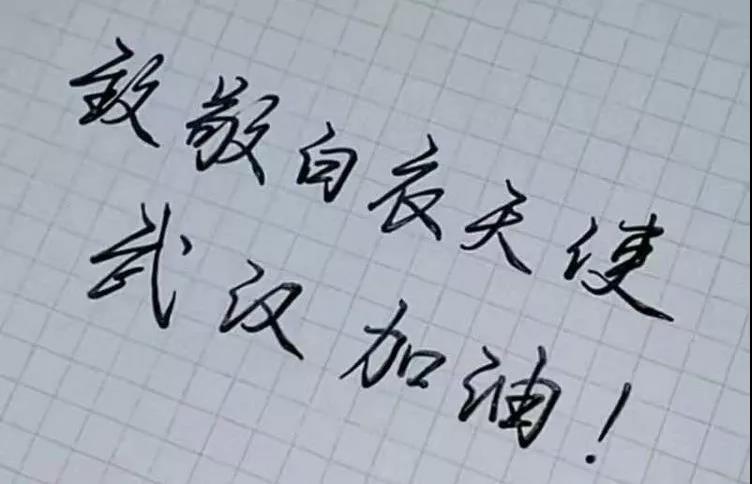 致敬白衣天使
武汉加油！